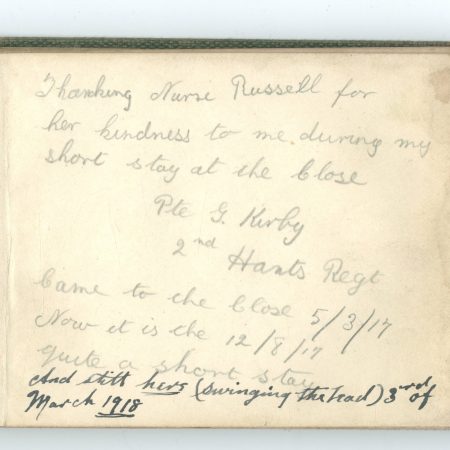 Thanking Nurse Russell for
her kindness to me during my
short stay at the Close
Pte G. Kirby
2nd Hants Regt
Came to the Close 5/3/17
Now it is the 12/8/17
quite a short stay
And still here (swinging the lead) 3rd of
March 1918